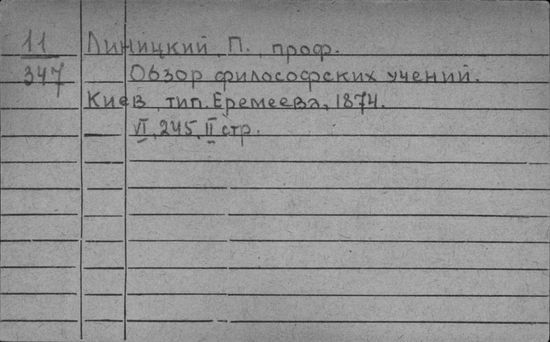 11 Линицкий, П. проф.
347 Обзор философских учений.
Киев, тип. Еремеева, 1874.
VI, 245, II стр.